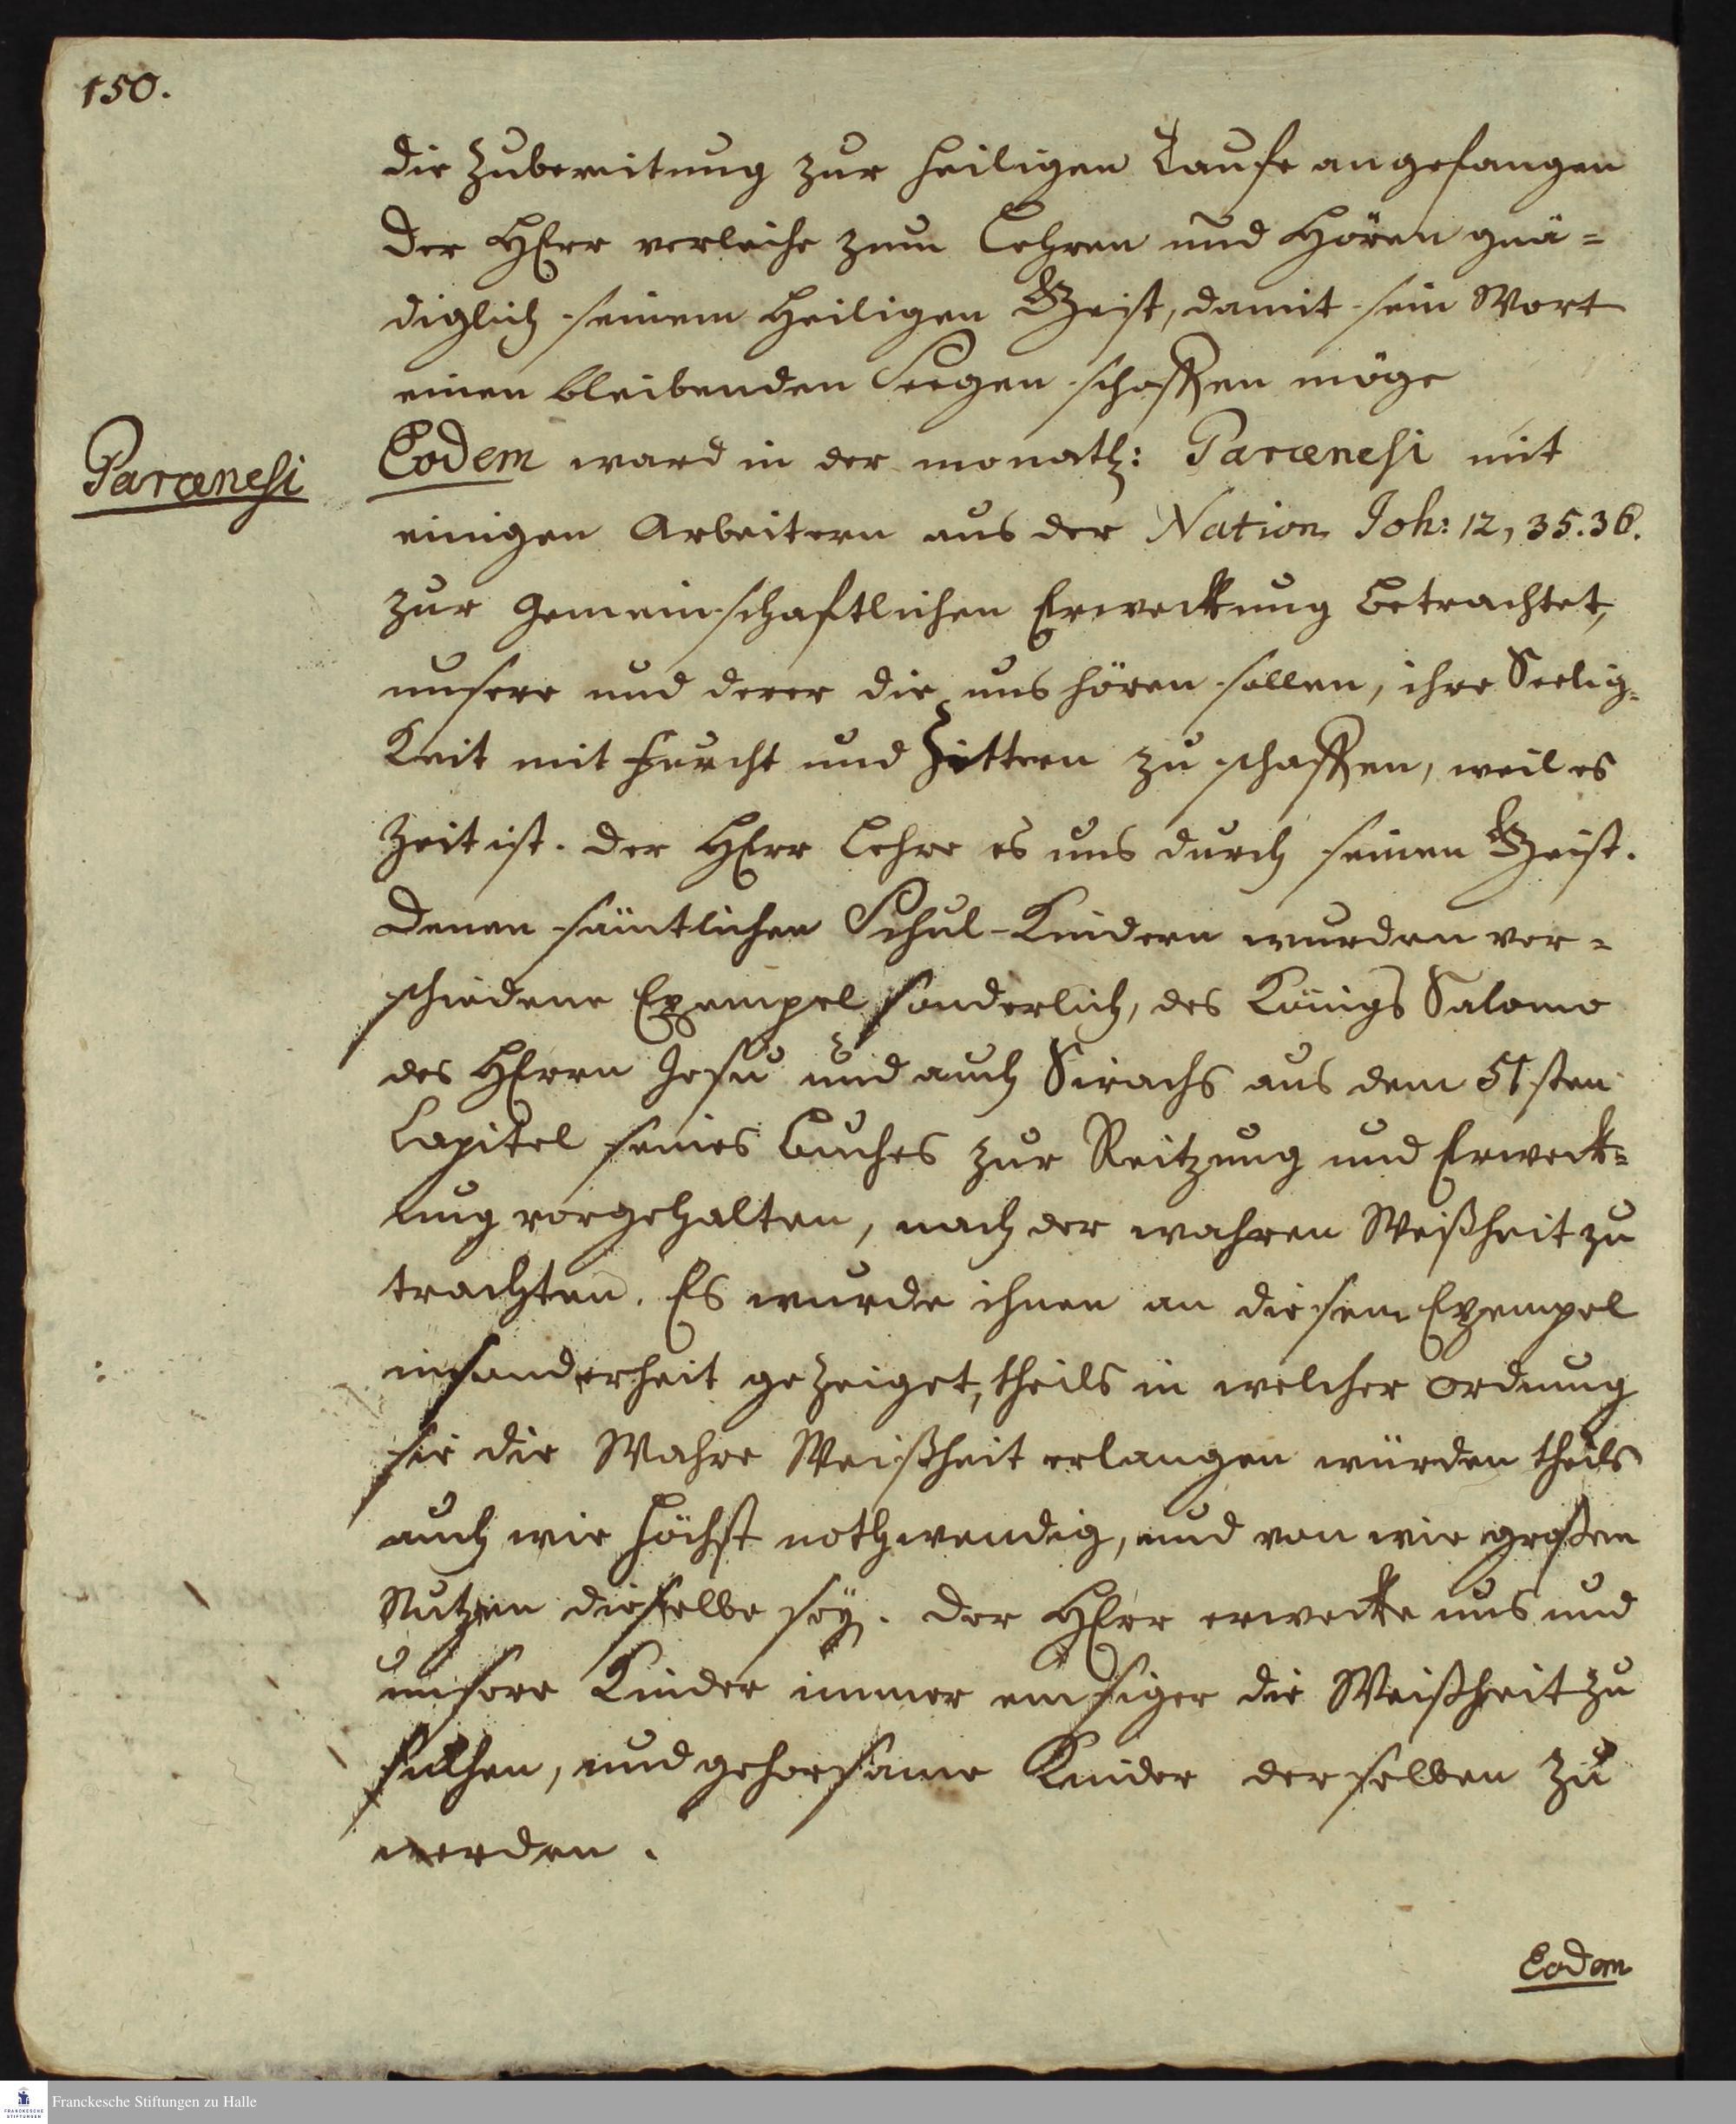 150.
die Zubereitung zur heiligen Taufe angefangen
Der HErr verleihe zum Lehren und Hören gnä=
diglich seinem heiligen Geist, damit sein Wort
einen bleibenden Seegen schaffen möge
Parænesi
Eodem ward in der monatl: Parænesi mit
einigen Arbeitern aus der Nation Joh: 12, 35.36.
zur gemeinschaftlichen Erweckung betrachtet,
unsere und derer die uns hören sollen, ihre Seelig=
keit mit Furcht und Zittern zu schaffen, weil es
Zeit ist. Der HErr lehre es uns durch seinen Geist.
Denen sämtlichen Schul-Kindern wurden ver=
schiedene Exempel sonderlich, des Königs Salomo
des HErrn Jesu und auch Sirachs aus dem 51sten
Capitel seines Buches zur Reitzung und Erweck=
ung vorgehalten, nach der wahren Weißheit zu
trachten. Es wurde ihnen an diesem Exempel
insonderheit gezeiget, theils in welcher Ordnung
sie die Wahre Weißheit erlangen würden theils
auch wie höchst nothwendig, und von wie großem
Nutzen dieselbe sey. Der HErr erwecke uns und
unsere Kinder immer emsiger die Weißheit zu
suchen, und gehorsame Kinder derselben zu
werden.
Eodem
Franckesche Stiftungen zu Halle
FRANCKESCHE
STIFTUNGEN